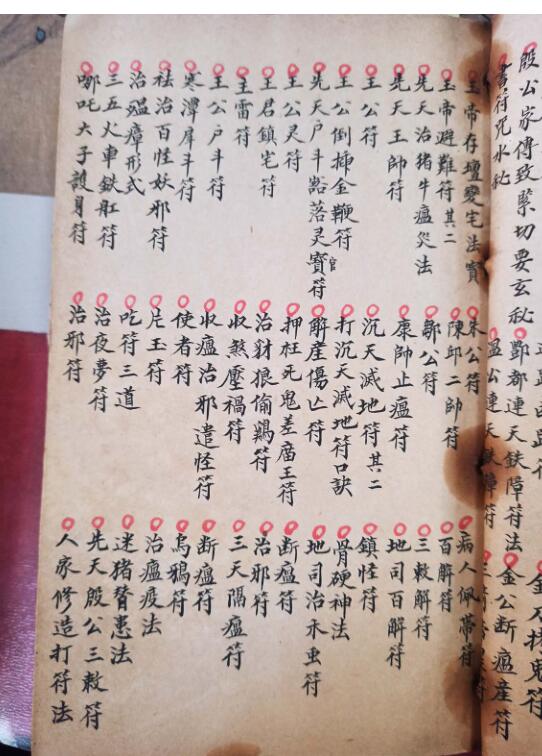 殷公家傳致緊切要玄秘
書符咒水秘
酆都連天鉄障符法
温公連天鉄障符
金公断瘟產符
玉帝存壇變宅法寶
玉帝避難符其二
先天治猪牛瘟災法
先天王帥符
王公符
王公倒揷金鞭符
先天户斗豁落灵寳符
王公灵符
王君鎮宅符
主雷符
王公户斗符
寒潭犀斗符
祛治百怪妖邪符
治瘟瘴形式
三五火車鉄肛符
哪吒太子護身符
朱公符
陳邱二帥符
鄒公符
康帥止瘟符
沉天滅地符其二
打沉天滅地符口訣
解産傷亡符
押枉死鬼差庙王符
治豺狼偷鷄符
收煞壓禍符
收瘟治邪遣怪符
使者符
片玉符
吃符三道
治夜夢符
治邪符
病人佩帶符
百解符
三敕解符
地司百解符
鎮怪符
骨硬神法
地司治禾虫符
断瘟符
治邪符
三天隔瘟符
断瘟符
烏鴉符
治瘟疫法
迷猪督患法
先天殷公三敕符
人家修造打符法